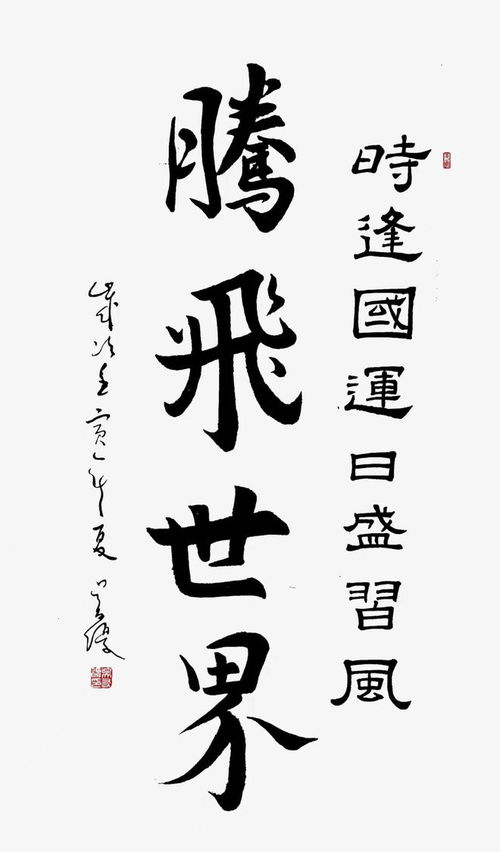 時逢國運日盛習風
騰飛世界
歲次壬寅年夏